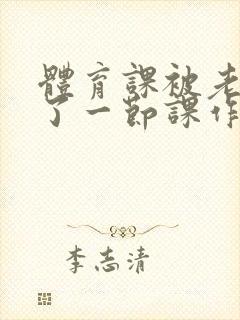 體育課被老
了一節課作
李志清